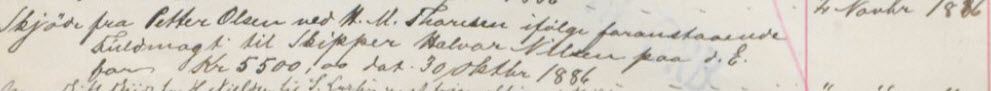 Skjöde fra Petter Olsen ved H. M. Thoresen ifölge foranstaaende
4 Novbr 1886
Fuldmagt til Skipper Halvor Nilsen paa d. E.
for Kr 5500,00 dat. 30 Oktbr 1886